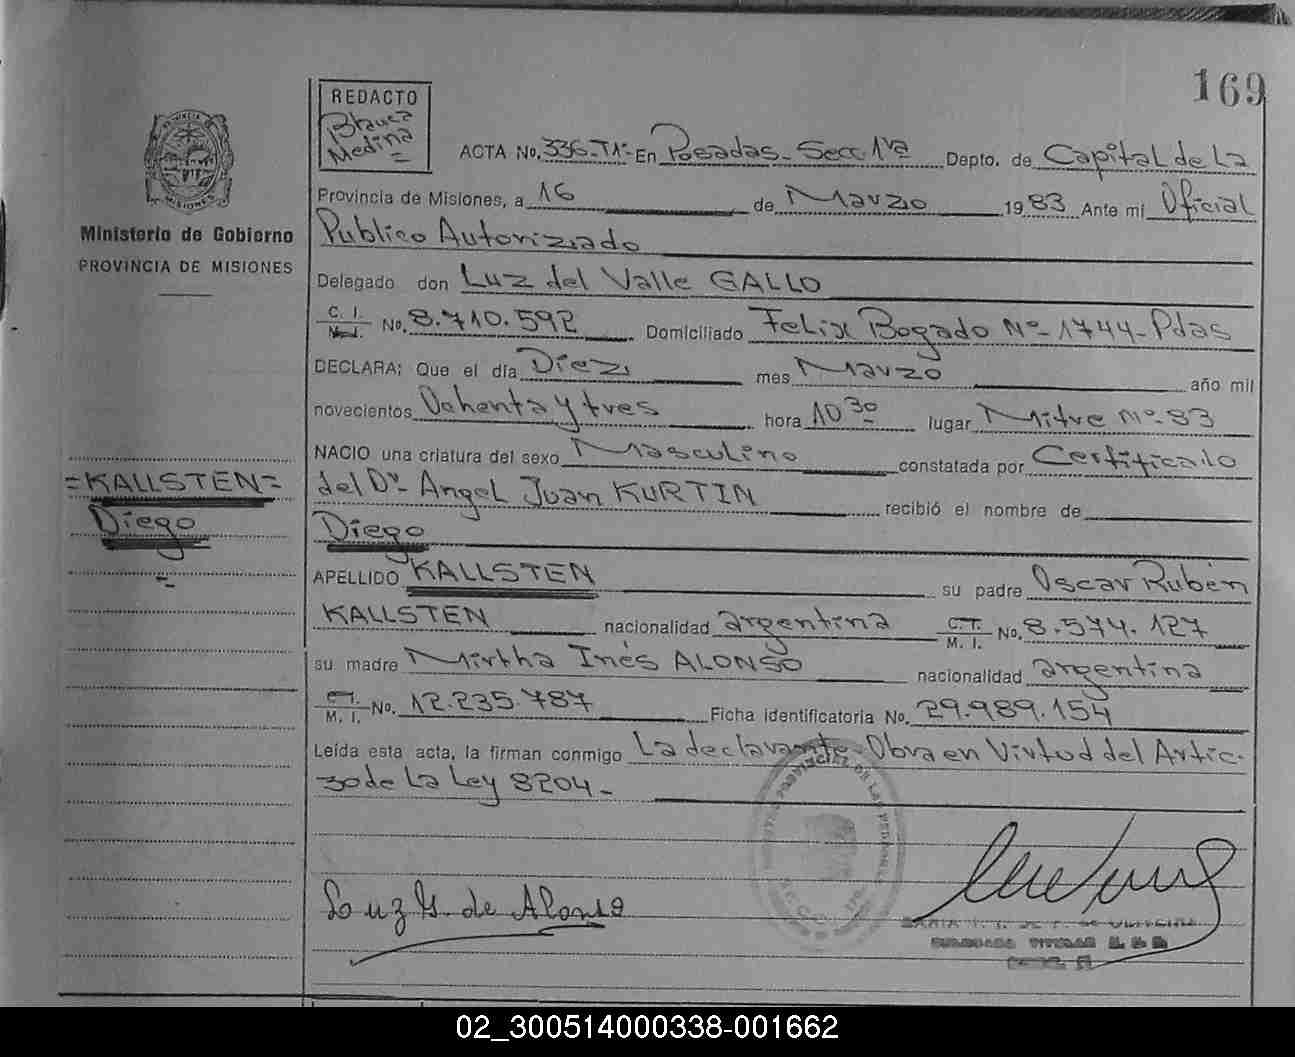 169
REDACTO
Blanca
Medina
ACTA No. 336-T1º- En Posadas - Secc. 1ra Depto. de Capital de La
Provincia de Misiones, a 16 de Marzo 1983 Ante mi Oficial
Publico Autorizado
Ministerio de Gobierno
PROVINCIA DE MISIONES
Delegado don Luz del Valle GALLO
C. I. No. 8.710.592 Domiciliado Felix Bogado Nº-1744-Pdas
DECLARA: Que el día Diez mes Marzo año mil
novecientos Ochenta y tres hora 10 30 lugar Mitre Nº-83
NACIO una criatura del sexo Masculino constatada por Certificado
=KALLSTEN= del Dr- Angel Juan KURTIN recibió el nombre de
Diego Diego
APELLIDO KALLSTEN su padre Oscar Rubén
KALLSTEN nacionalidad argentina C. I. M. I. No. 8.574.127
su madre Mirtha Inés ALONSO nacionalidad argentina
C. I. M. I. No. 12.235.787 Ficha identificatoria No. 29.989.154
Leída esta acta, la firman conmigo La declarante- Obra en Virtud del Artic-
30 de La Ley 8204-
Luz G. de Alonso
02_300514000338-001662